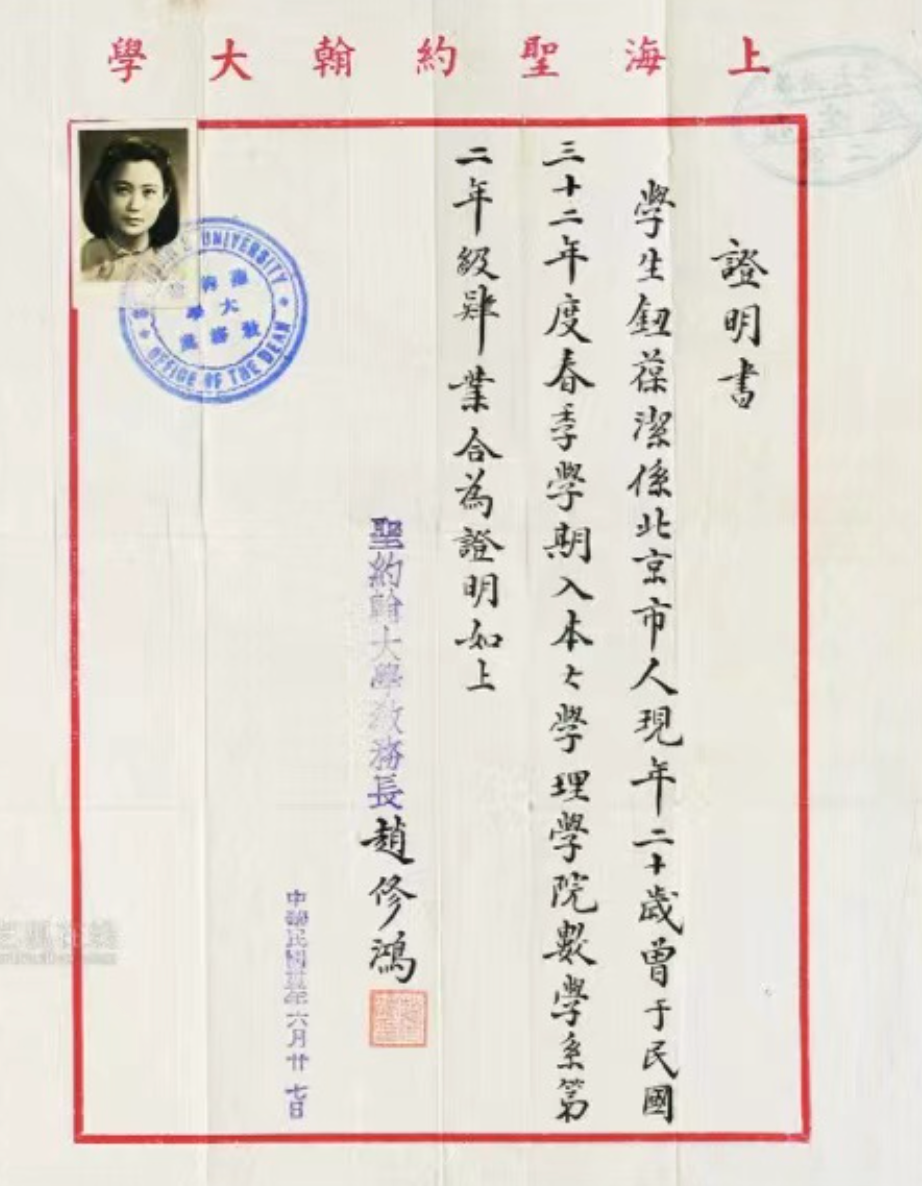 上海聖約翰大學
證明書
學生鈕葆潔係北京市人現年二十歲曾于民國
三十二年度春季學期入本大學理學院數學系第
二年級肄業合為證明如上
聖約翰大學教務長趙修鴻
中華民國卅五年六月廿七日
UNIVERSITY
OFFICE OF THE DEAN